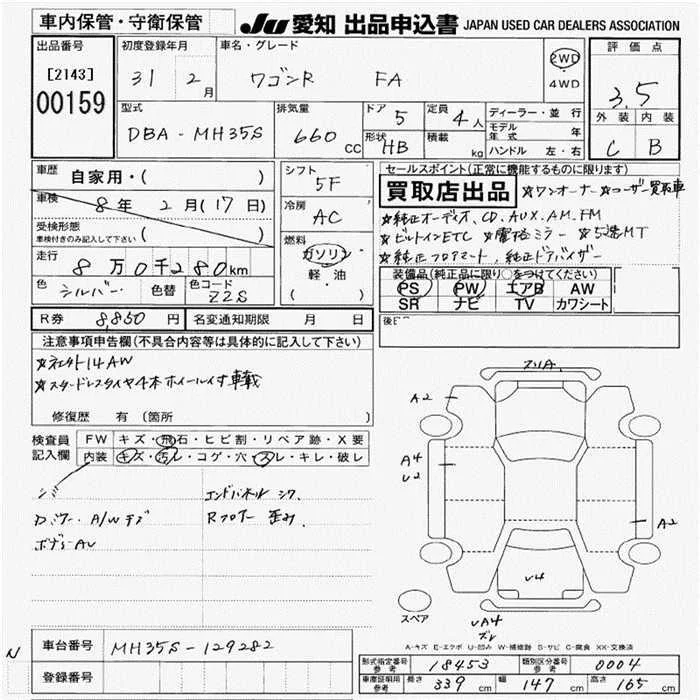 車内保管・守衛保管 JU 愛知 出品申込書 JAPAN USED CAR DEALERS ASSOCIATION
出品番号 初度登録年月 車名・グレード 2WD 評価点
[2143] 31 2月 ワゴンR FA 4WD 3.5
00159 外装 内装
型式 排気量 ドア 5 定員 4人 ディーラー・並行
モデル年式 年
DBA-MH35S 660cc 形状 HB 積載 kg ハンドル 左・右 C B
車歴 自家用・( ) シフト 5F セールスポイント(正常に機能するものに限ります)
買取店出品 ☆ワンオーナー ☆ユーザー買取車
車検 8年 2月(17日) 冷房 AC ☆純正オーディオ, CD, AUX, AM, FM
受検形態 ( )
車検付きのみ記入して下さい
☆ビルトインETC ☆電格ミラー ☆5速MT
燃料 ガソリン ☆純正フロアマット, 純正ドアバイザー
走行 8万0千280km 軽・油
装備品(純正品に限り○をつけてください)
( )
色 シルバー 色替 色コード Z2S
PS PW エアB AW
SR ナビ TV カワシート
R券 8,850円 名変通知期限 月 日
注意事項申告欄(不具合内容等は具体的に記入して下さい)
☆ネクスト14AW
☆スタッドレスタイヤ4本ホイール付 車載
修復歴 有 (箇所
スリA
A2
検査員記入欄 FW キズ・飛石・ヒビ割・リペア跡・X要
内装 キズ・汚レ・コゲ・穴・スレ・キレ・破レ
A4
U2
エンドパネル シワ
A/Wキズ Rフロアー 歪み
ボデーAU
A2
U4
スペア
UA4
ズレ
A-キズ E-エクボ U-凹み W-補修跡 S-サビ C-腐食 XX-交換済
N 車台番号 MH35S-129282
型式指定番号 参考 18453 類別区分番号 参考 0004
登録番号 車庫証明用 参考 長さ 339cm 幅 147cm 高さ 165cm